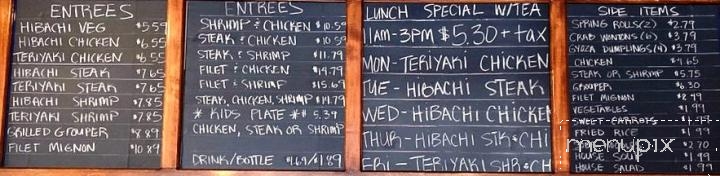 ENTREES
HIBACHI VEG $5.59
HIBACHI CHICKEN $6.55
TERIYAKI CHICKEN $6.55
HIBACHI STEAK $7.65
TERIYAKI STEAK $7.65
HIBACHI SHRIMP $7.85
TERIYAKI SHRIMP $7.85
GRILLED GROUPER $8.89
FILET MIGNON $10.89
ENTREES
SHRIMP & CHICKEN $10.59
STEAK & CHICKEN $10.59
STEAK & SHRIMP $11.79
FILET & CHICKEN $14.79
FILET & SHRIMP $15.69
STEAK, CHICKEN, SHRIMP $14.79
* KIDS PLATE * $5.39
CHICKEN, STEAK OR SHRIMP
DRINK/BOTTLE $1.69/$1.89
LUNCH SPECIAL W/TEA
11AM-3PM $5.30 + tax
MON-TERIYAKI CHICKEN
TUE-HIBACHI STEAK
WED-HIBACHI CHICKEN
THUR-HIBACHI STK&CHI
FRI-TERIYAKI SHR&CH
SIDE ITEMS
SPRING ROLLS(2) $2.79
CRAB WONTONS(6) $3.79
GYOZA DUMPLINGS(4) $3.79
CHICKEN $4.65
STEAK OR SHRIMP $5.75
GROUPER $6.30
FILET MIGNON $8.49
VEGETABLES $1.99
SWEET CARROTS
FRIED RICE $1.99
$2.70
HOUSE SOUP $1.99
HOUSE SALAD $1.99
menupix